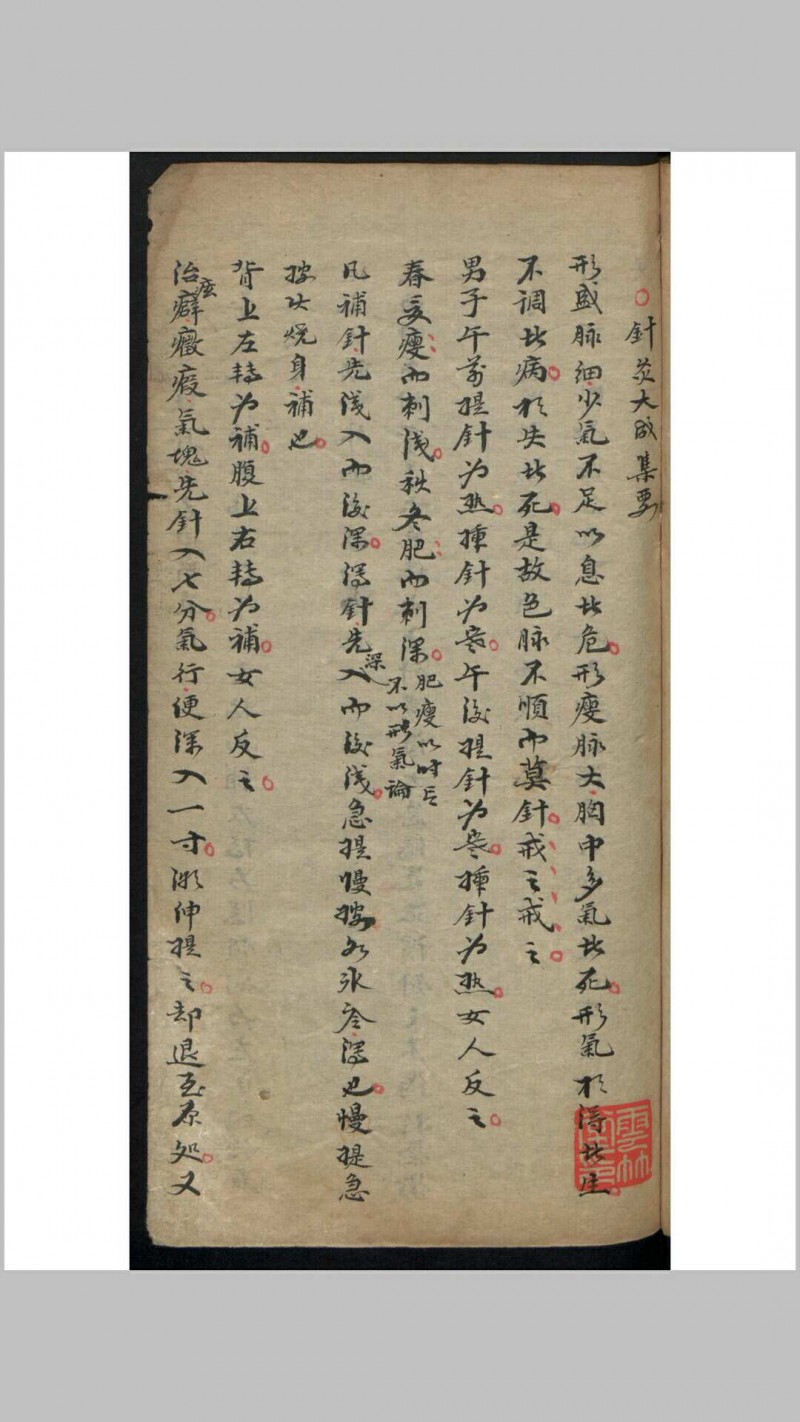 針灸大成集要
形盛脉细少氣不足以息此危形瘦脉大胸中多氣此死形氣相得此生
不調此病相失此死是故色脉不順而莫針戒之戒之
男子午前提針为热揷針为寒午後提針为寒揷針为热女人反之
春夏瘦而刺浅秋冬肥而刺深
肥瘦以时言
不以形氣論
凡補針先浅入而後深瀉針先深入而後浅急提慢按如氷冷瀉也慢提急
按火燒身補也
背上左轉为補腹上右轉为補女人反之
治痃癖癥瘕氣塊先針入七分氣行便深入一寸微伸提之却退至原処又
雲林